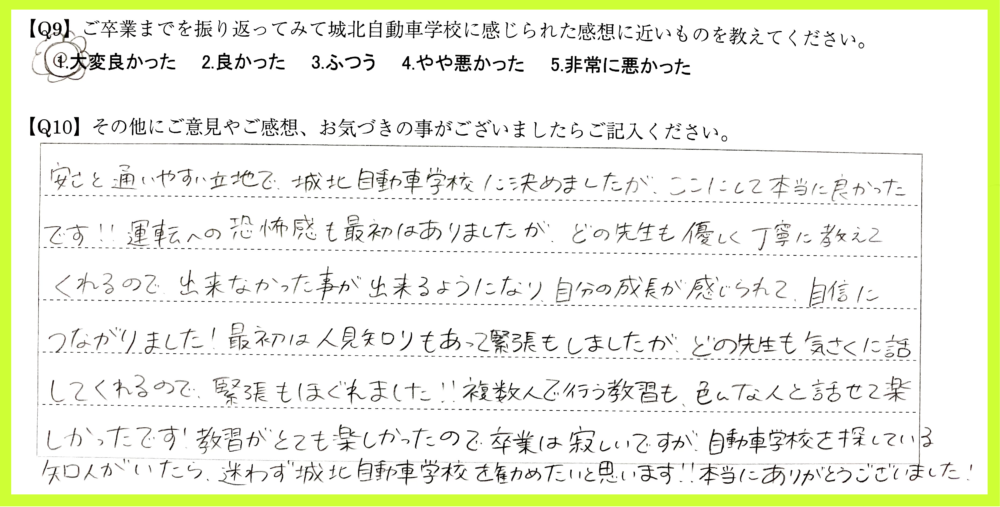 【Q9】ご卒業までを振り返ってみて城北自動車学校に感じられた感想に近いものを教えてください。
1.大変良かった 2.良かった 3.ふつう 4.やや悪かった 5.非常に悪かった
【Q10】その他にご意見やご感想、お気づきの事がございましたらご記入ください。
安さと通いやすい立地で、城北自動車学校に決めましたが、ここにして本当に良かった
です!!運転への恐怖感も最初はありましたが、どの先生も優しく丁寧に教えて
くれるので、出来なかった事が出来るようになり、自分の成長が感じられて、自信に
つながりました!最初は人見知りもあって緊張もしましたが、どの先生も気さくに話
してくれるので、緊張もほぐれました!!複数人で行う教習も、色んな人と話せて楽
しかったです!教習がとても楽しかったので卒業は寂しいですが、自動車学校を探している
知人がいたら、迷わず城北自動車学校を勧めたいと思います!!本当にありがとうございました!